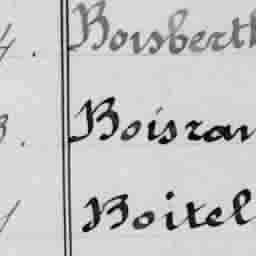 4. Boisberth
3. Boisran
Boitel